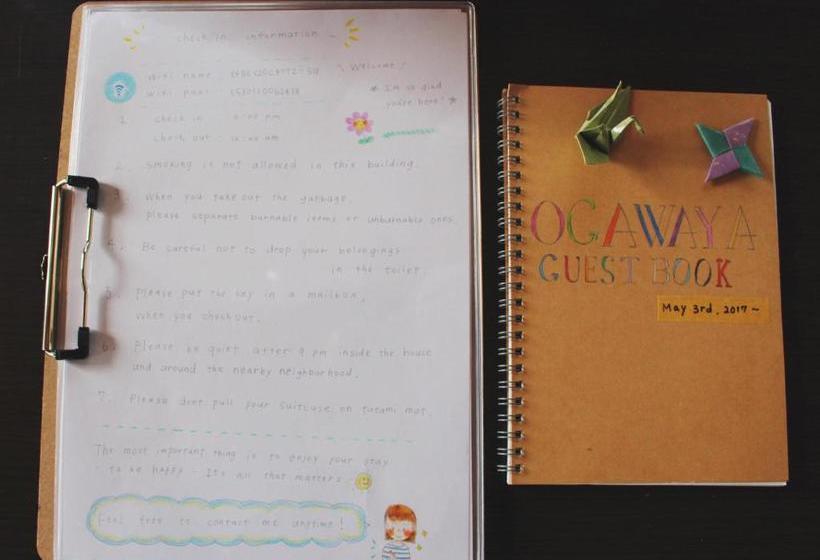 check in information
wifi name :
wifi pass :
Welcome!
I'm so glad
you're here!
1. check in : pm
check out : am
2. smoking is not allowed in this building.
3. When you take out the garbage,
please separate burnable items or unburnable ones.
4. Be careful not to drop your belongings
in the toilet.
5. Please put the key in a mailbox,
when you check out.
6. Please be quiet after 9 pm inside the house
and around the nearby neighborhood.
7. Please dont pull your suitcase on tatami mat.
The most important thing is to enjoy your stay
to be happy - It's all that matters
Feel free to contact me anytime!
OGAWAYA
GUEST BOOK
May 3rd, 2017 ~